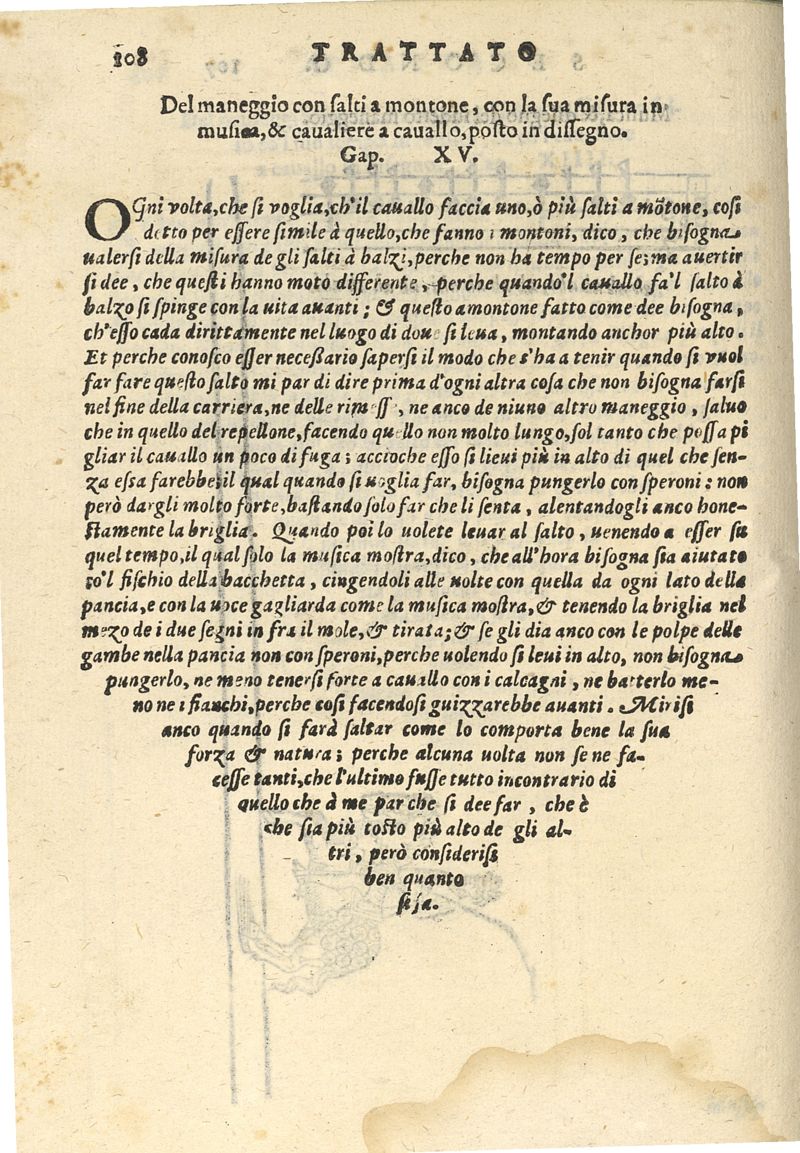 108 TRATTATO
Del maneggio con salti a montone, con la sua misura in
musica, & cavaliere a cavallo, posto in dissegno.
Gap. XV.
OGni volta, che si voglia, ch'il cauallo faccia uno, ò più salti a mõtone, cosi
detto per essere simile à quello, che fanno i montoni, dico, che bisogna
ualersi della misura de gli salti à balzi, perche non ha tempo per se; ma auertir
si dee, che questi hanno moto differente, perche quando'l cauallo fa'l salto à
balzo si spinge con la uita auanti; & questo amontone fatto come dee bisogna,
ch'esso cada dirittamente nel luogo di doue si leua, montando anchor più alto.
Et perche conosco esser necessario sapersi il modo che s'ha a tenir quando si vuol
far fare questo salto mi par di dire prima d'ogni altra cosa che non bisogna farsi
nel fine della carriera, ne delle rimesse, ne anco de niuno altro maneggio, saluo
che in quello del repellone, facendo quello non molto lungo, sol tanto che possa pi
gliar il cauallo un poco di fuga; accioche esso si lieui più in alto di quel che sen-
za essa farebbe; il qual quando si uoglia far, bisogna pungerlo con speroni: non
però dargli molto forte, bastando solo far che li senta, alentandogli anco hone-
stamente la briglia. Quando poi lo uolete leuar al salto, uenendo a esser su
quel tempo, il qual solo la musica mostra, dico, che all'hora bisogna sia aiutato
co'l fischio della bacchetta, cingendoli alle uolte con quella da ogni lato della
pancia, e con la uoce gagliarda come la musica mostra, & tenendo la briglia nel
mezo de i due segni in fra il mole, & tirata; & se gli dia anco con le polpe delle
gambe nella pancia non con speroni, perche uolendo si leui in alto, non bisogna
pungerlo, ne meno tenersi forte a cauallo con i calcagni, ne batterlo me-
no ne i fianchi, perche cosi facendosi guizzarebbe auanti. Mirisi
anco quando si farà saltar come lo comporta bene la sua
forza & natura; perche alcuna uolta non se ne fa-
cesse tanti, che l'ultimo fusse tutto incontrario di
quello che à me par che si dee far, che è
che sia più tosto più alto de gli al-
tri, però considerisi
ben quanto
sija.